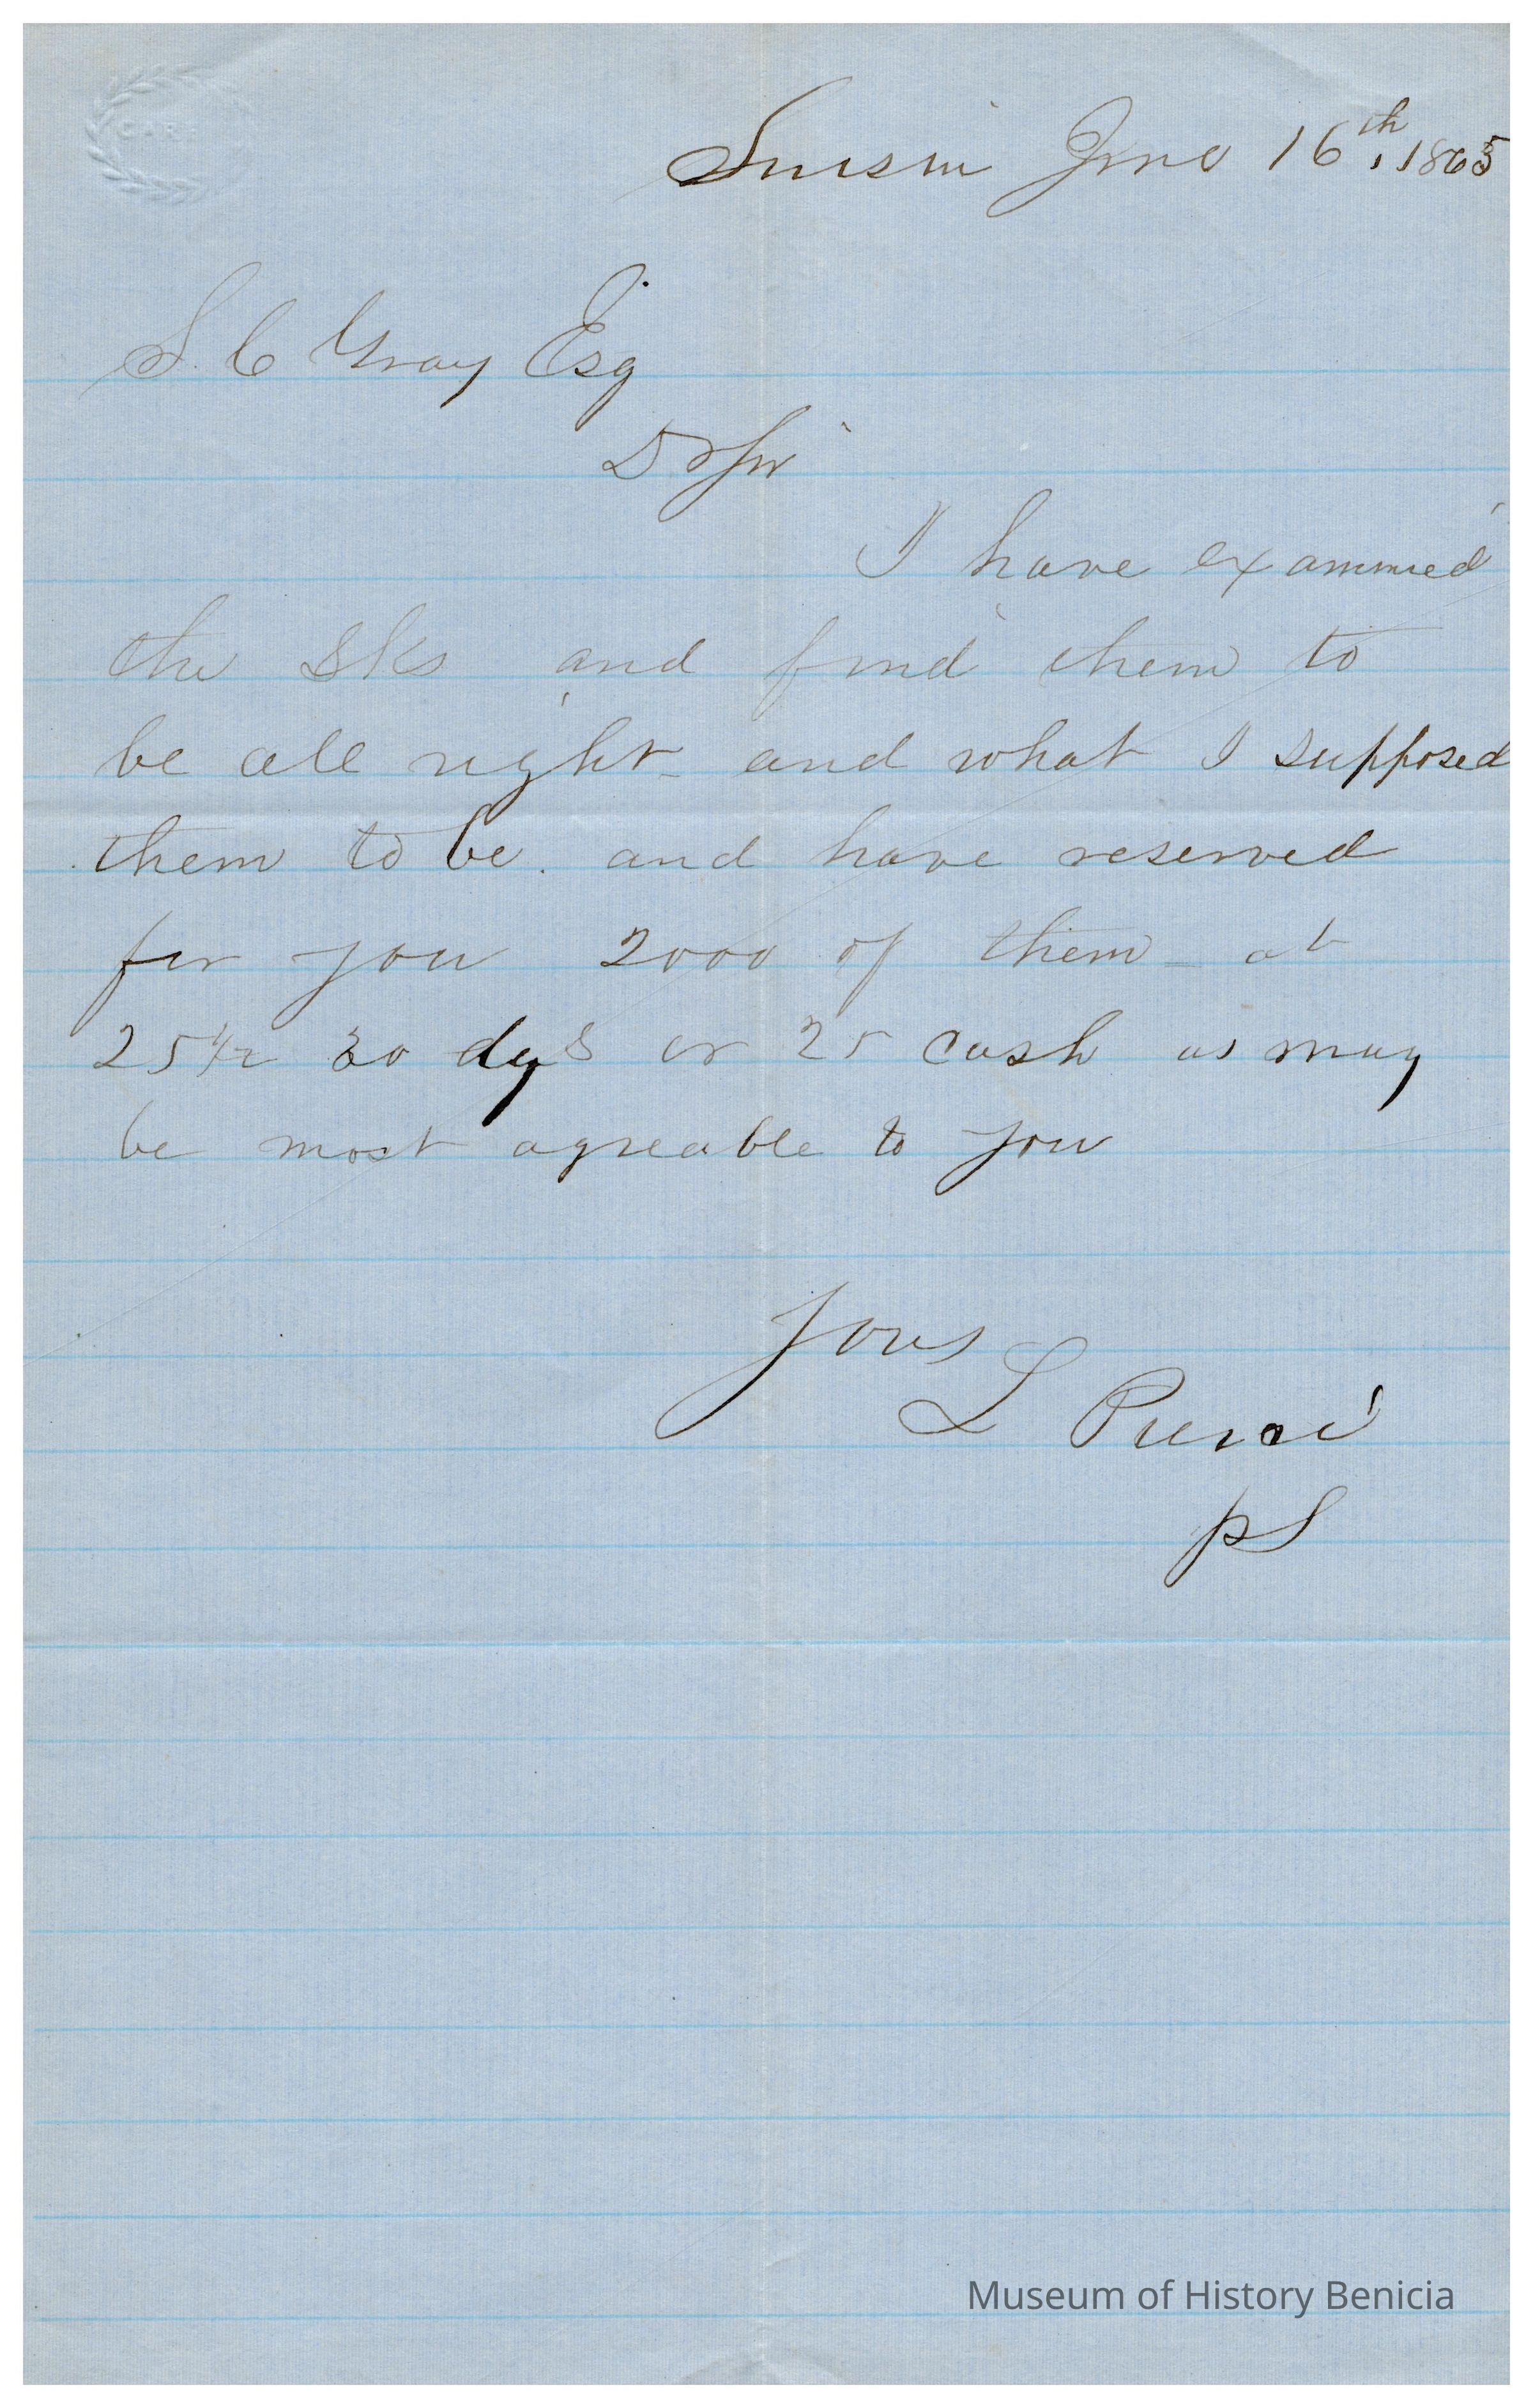 CARR
Suisun June 16th, 1865
S. C Gray Esq
D Sir
I have examined
the Sks and find them to
be all right - and what I supposed
them to be. and have reserved
for you 2000 of them - at
25 1/2 30 dys or 25 cash as may
be most agreable to you
Yours
L Pierce
pS
Museum of History Benicia